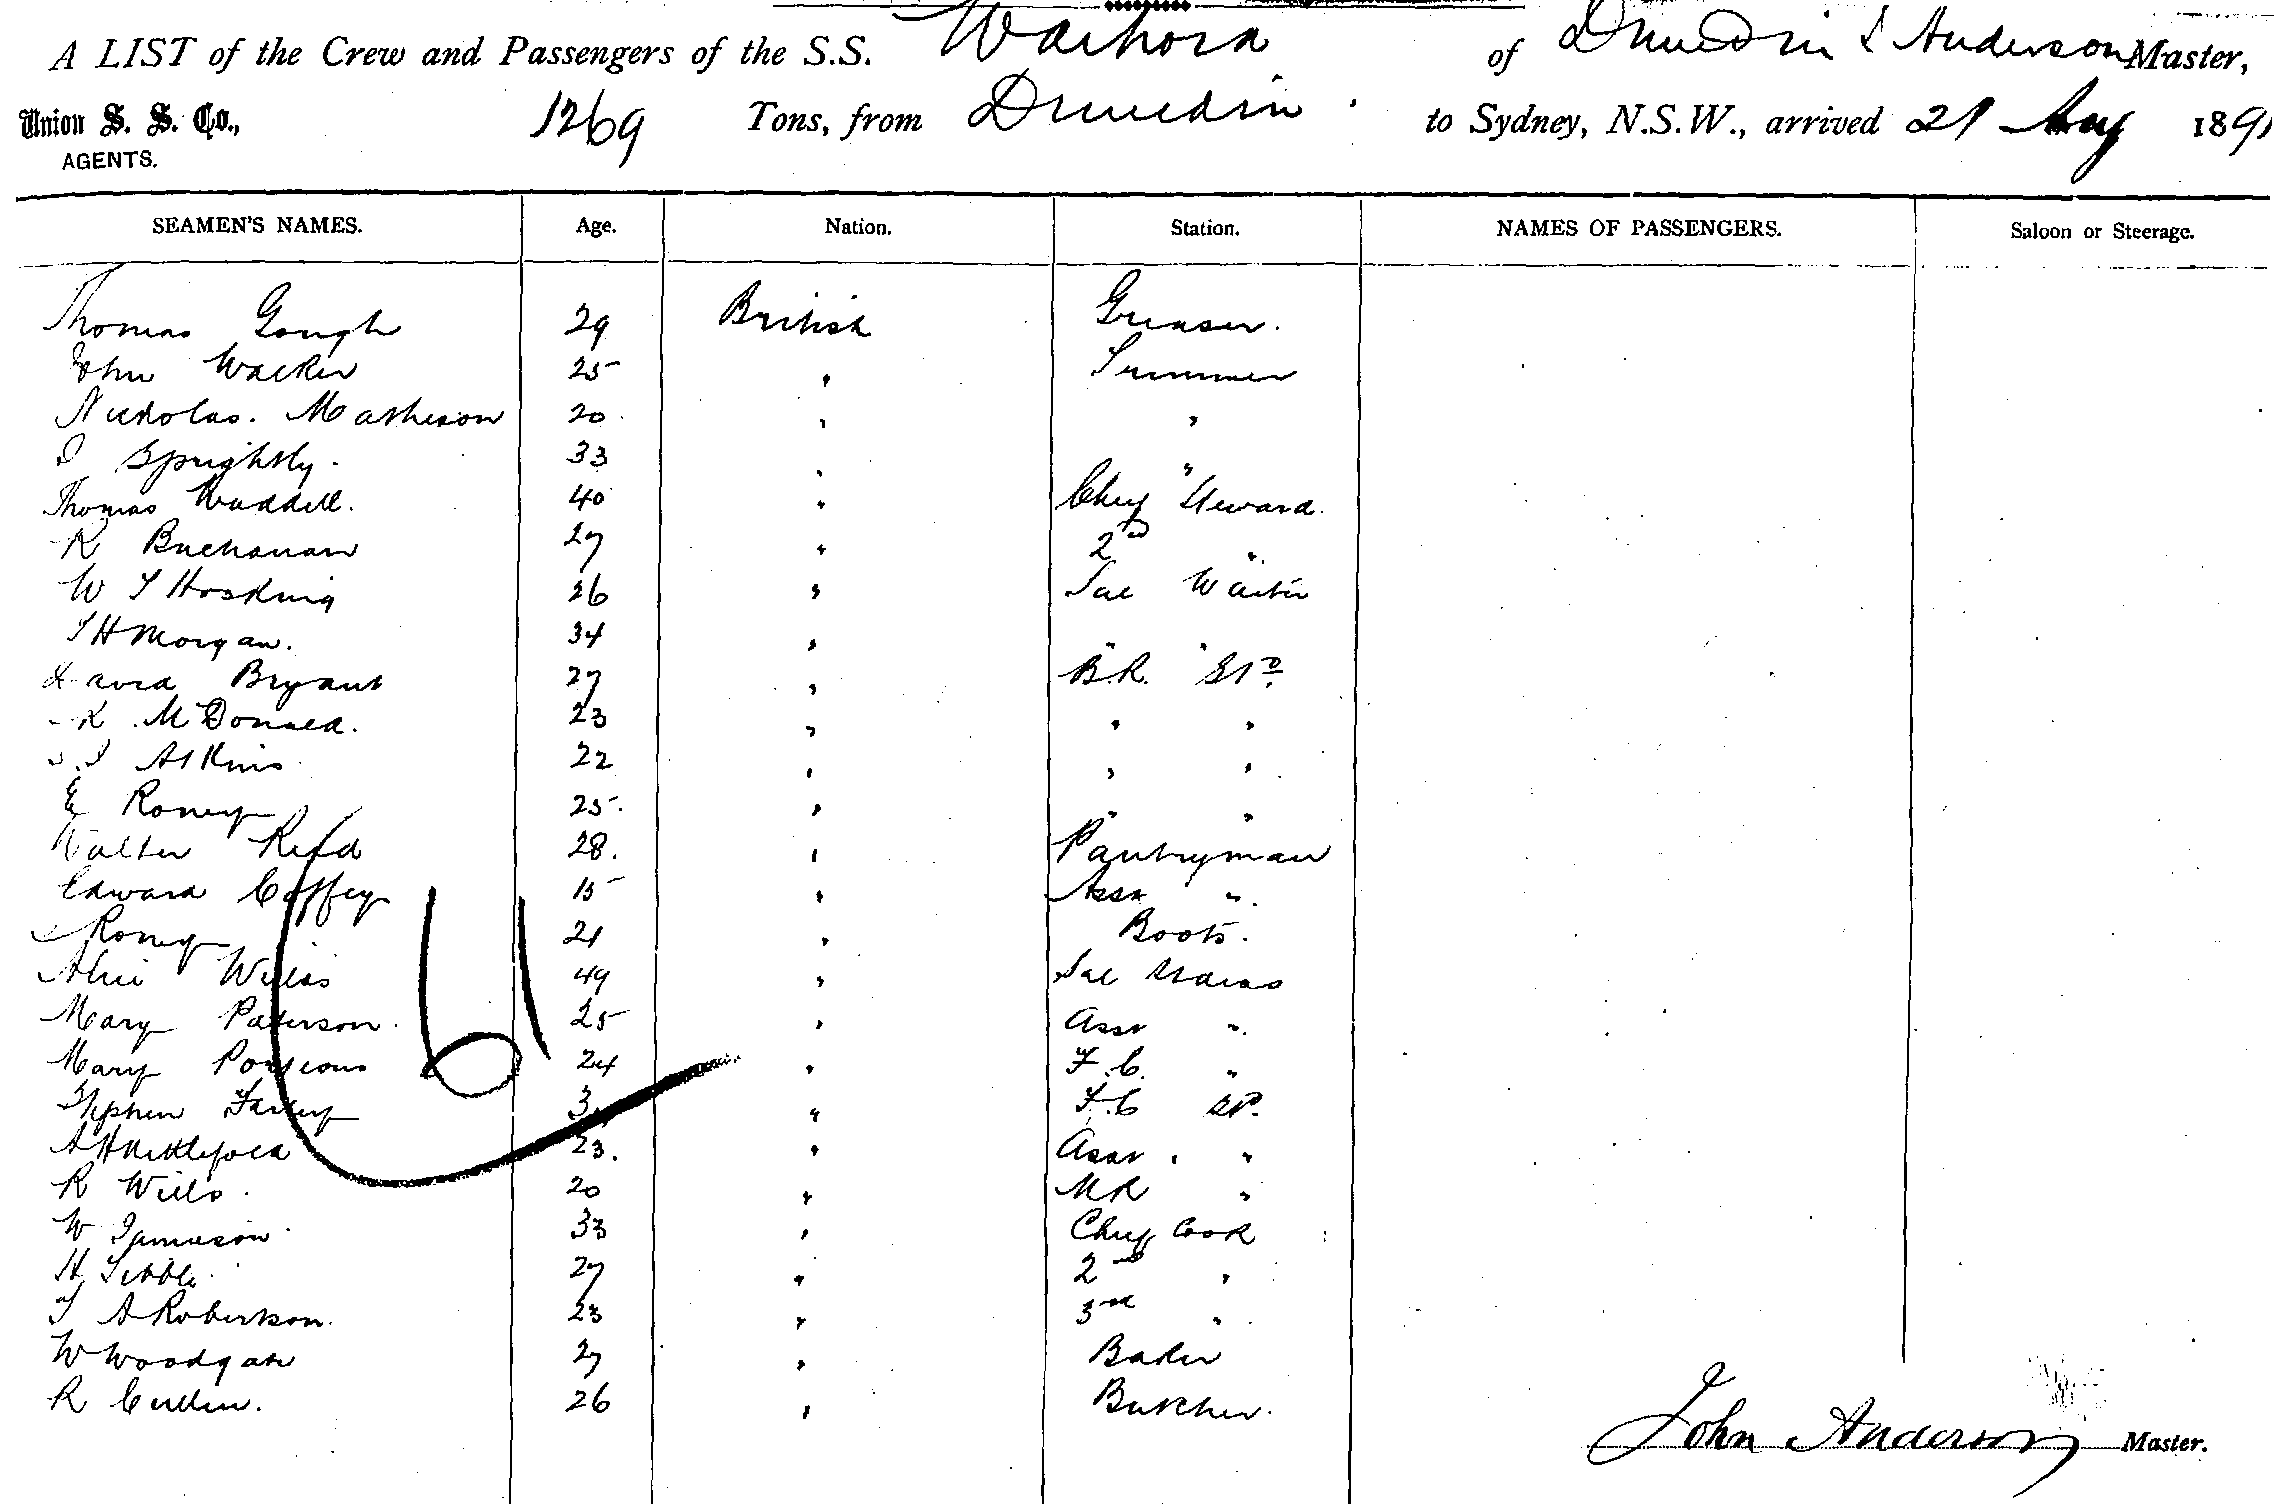 A LIST of the Crew and Passengers of the S.S. Waihora of Dunedin J Anderson Master,
Union S. S. Co., 1269 Tons, from Dunedin to Sydney, N.S.W., arrived 21 Aug 1891
AGENTS.
SEAMEN'S NAMES. Age. Nation. Station. NAMES OF PASSENGERS. Saloon or Steerage.
Thomas Gough 29 British Greaser.
John Walker 25 " Trimmer
Nickolas. Matheson 20 " "
Sprightly. 33 " "
Thomas Waddell. 40 " Chief Steward.
R Buchanan 27 " 2nd "
W J Hosking 26 " Sal Waiter
J H Morgan. 34 " " "
David Bryant 27 " B.R. Std.
R McDonald. 23 " " "
Atkins 22 " " "
E Roney 25. " " "
Walter Reid 28. " Pantryman
Edward Coffey 15 " Asst ".
Roney 21 " Boots.
Alice Wills 49 " Sal Stdess
Mary Paterson. 25 " Asst ".
Mary 24 " F.C. "
Stephen 3 " F.C St.
A H Nettlefold 23. " Asst . "
R Wills. 20 " MR "
W Jamieson 33 " Chief Cook
H Tibble. 27 " 2nd "
A Robertson. 23 " 3rd "
W Woodgate 27 " Baker
R Cullen. 26 " Butcher.
61
John Anderson Master.